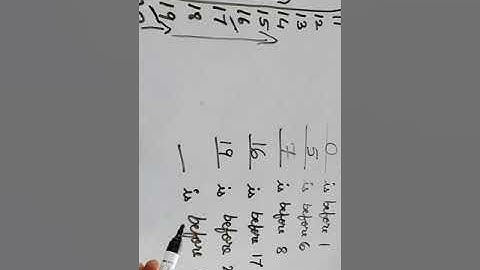 11
12
13
14
15
16
17
18
19
0 is before 1
5 is before 6
7 is before 8
16 is before 17
19 is before
__ is before